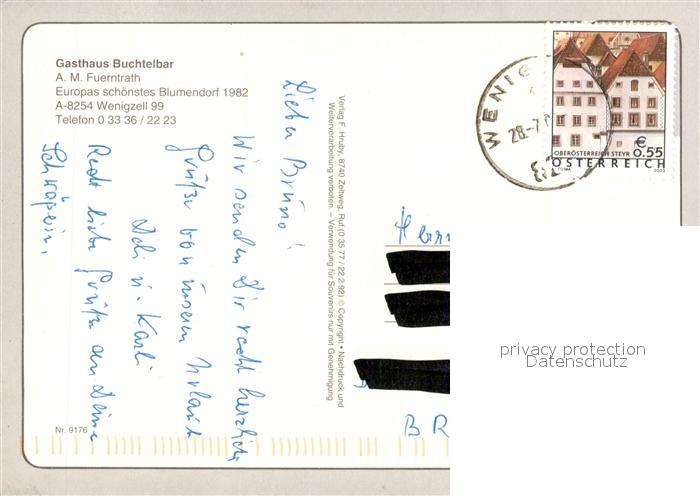 Gasthaus Buchtelbar
A. M. Fuerntrath
Europas schönstes Blumendorf 1982
A-8254 Wenigzell 99
Telefon 0 33 36 / 22 23
Lieber Bruno!
Wir senden Dir recht herzliche
Grüße von unserem Urlaub
Dei u. Karli
Recht liebe Grüße an Deine
Schwägerin.
Verlag F. Hruby, 8740 Zeltweg, Ruf (0 35 77 / 22 2 92) © Copyright • Nachdruck und
Weiterverarbeitung verboten. – Verwendung für Souvenirs nur mit Genehmigung
Nr. 9176
WENIG
28.-7.
OBERÖSTERREICH STEYR
€
0.55
ÖSTERREICH
TUMA
2003
Herrn
BR
privacy protection
Datenschutz